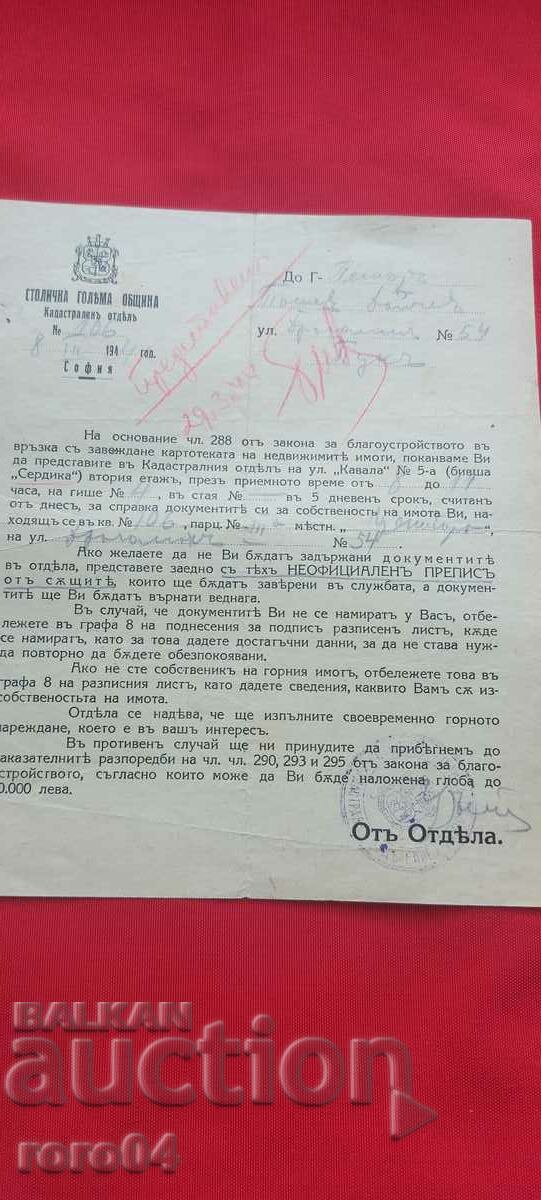 СТОЛИЧНА ГОЛѢМА ОБЩИНА
Кадастраленъ отдѣлъ
№ 206
8 III 194 год.
София
До Г-
ул. № 54
29.3.
На основание чл. 288 отъ закона за благоустройството въ
връзка съ завеждане картотеката на недвижимитѣ имоти, поканваме Ви
да представите въ Кадастралния отдѣлъ на ул. „Кавала" № 5-а (бивша
„Сердика") втория етажъ, презъ приемното време отъ 8 до 11
часа, на гише № 4, въ стая — въ 5 дневенъ срокъ, считанъ
отъ днесъ, за справка документитѣ си за собственость на имота Ви, на-
ходящъ се въ кв. № 106, парц. № III мѣстн. „
на ул. № 54.
Ако желаете да не Ви бѫдатъ задържани документитѣ
въ отдѣла, представете заедно съ тѣхъ НЕОФИЦИАЛЕНЪ ПРЕПИСЪ
отъ сѫщитѣ, които ще бѫдатъ завѣрени въ службата, а докумен-
титѣ ще Ви бѫдатъ върнати веднага.
Въ случай, че документитѣ Ви не се намиратъ у Васъ, отбе-
лежете въ графа 8 на поднесения за подпись разписенъ листъ, кѫде
се намиратъ, като за това дадете достатъчни данни, за да не става нуж-
да повторно да бѫдете обезпокоявани.
Ако не сте собственикъ на горния имотъ, отбележете това въ
графа 8 на разписния листъ, като дадете сведения, каквито Вамъ сѫ из-
собствеността на имота.
Отдѣла се надѣва, че ще изпълните своевременно горното
нареждане, което е въ вашъ интересъ.
Въ противенъ случай ще ни принудите да прибѣгнемъ до
наказателнитѣ разпоредби на чл. чл. 290, 293 и 295 отъ закона за благо-
устройството, съгласно които може да Ви бѫде наложена глоба до
0.000 лева.
Отъ Отдѣла.
BALKAN
auction
roro04